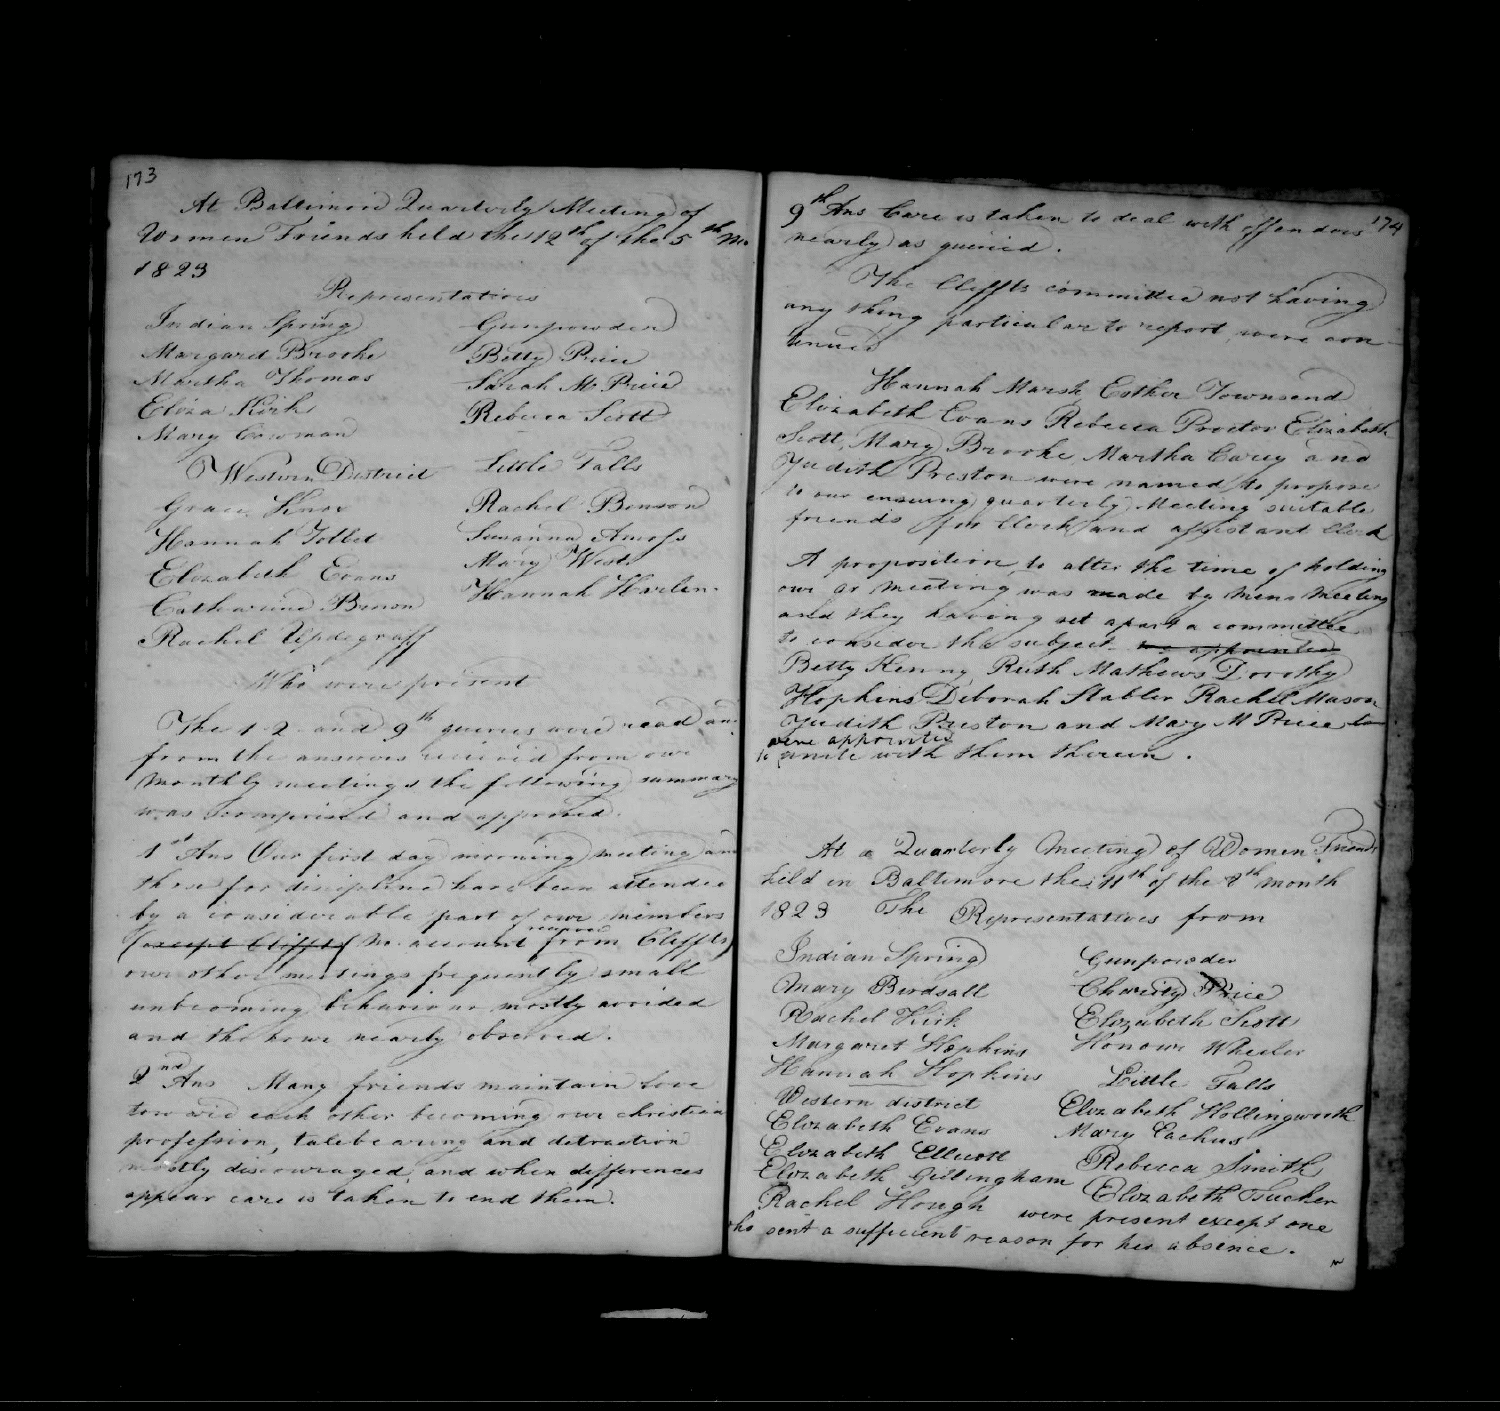 173
At Baltimore Quarterly Meeting of
Women Friends held the 12th of the 5th Mo
1823
Representatives
Indian Spring
Margaret Brooke
Martha Thomas
Eliza Kirk
Mary Cowman
Western District
Grace Knox
Hannah Tollet
Elizabeth Evans
Catharine Brown
Rachel Updegraff
Gunpowder
Betty Price
Sarah M Price
Rebecca Scott
Little Falls
Rachel Benson
Susanna Amoss
Mary West
Hannah Harlen
Who were present
The 1 2 and 9th queries were read and
from the answers received from our
monthly meetings the following summary
was comprised and approved.
1st Ans Our first day morning meeting and
those for discipline have been attended
by a considerable part of our members
(except Clifts) no account received from Cliffts)
our other meetings frequently small
unbecoming behavior mostly avoided
and the hour nearly observed.
2nd Ans Many friends maintain love
toward each other becoming our christian
profession, talebearing and detraction
mostly discouraged, and when differences
appear care is taken to end them.
174
9th Ans Care is taken to deal with offenders
nearly as queried.
The Cliffts committee not having
any thing particular to report were con-
tinued
Hannah Marsh Esther Townsend
Elizabeth Evans Rebecca Proctor Elizabeth
Scott, Mary Brooke Martha Carey and
Judith Preston were named to propose
to our ensuing quarterly Meeting suitable
friends for Clerk and assistant Clerk
A proposition to alter the time of holding
our qr meeting was made by mens meeting
and they having set apart a committee
to consider the subject we appointed
Betty Kenny Ruth Mathews Dorothy
Hopkins Deborah Stabler Rachel Mason
Judith Preston and Mary M Price
were appointed
to unite with them therein.
At a Quarterly Meeting of Women Friends
held in Baltimore the 11th of the 8th month
1823 The Representatives from
Indian Spring
Mary Birdsall
Rachel Kirk
Margaret Hopkins
Hannah Hopkins
Western district
Elizabeth Evans
Elizabeth Ellicott
Elizabeth Gillingham
Rachel Hough
Gunpowder
Charity Price
Elizabeth Scott
Honour Wheeler
Little Falls
Elizabeth Hollingworth
Mary Eachus
Rebecca Smith
Elizabeth Tucker
were present except one
who sent a sufficient reason for her absence.